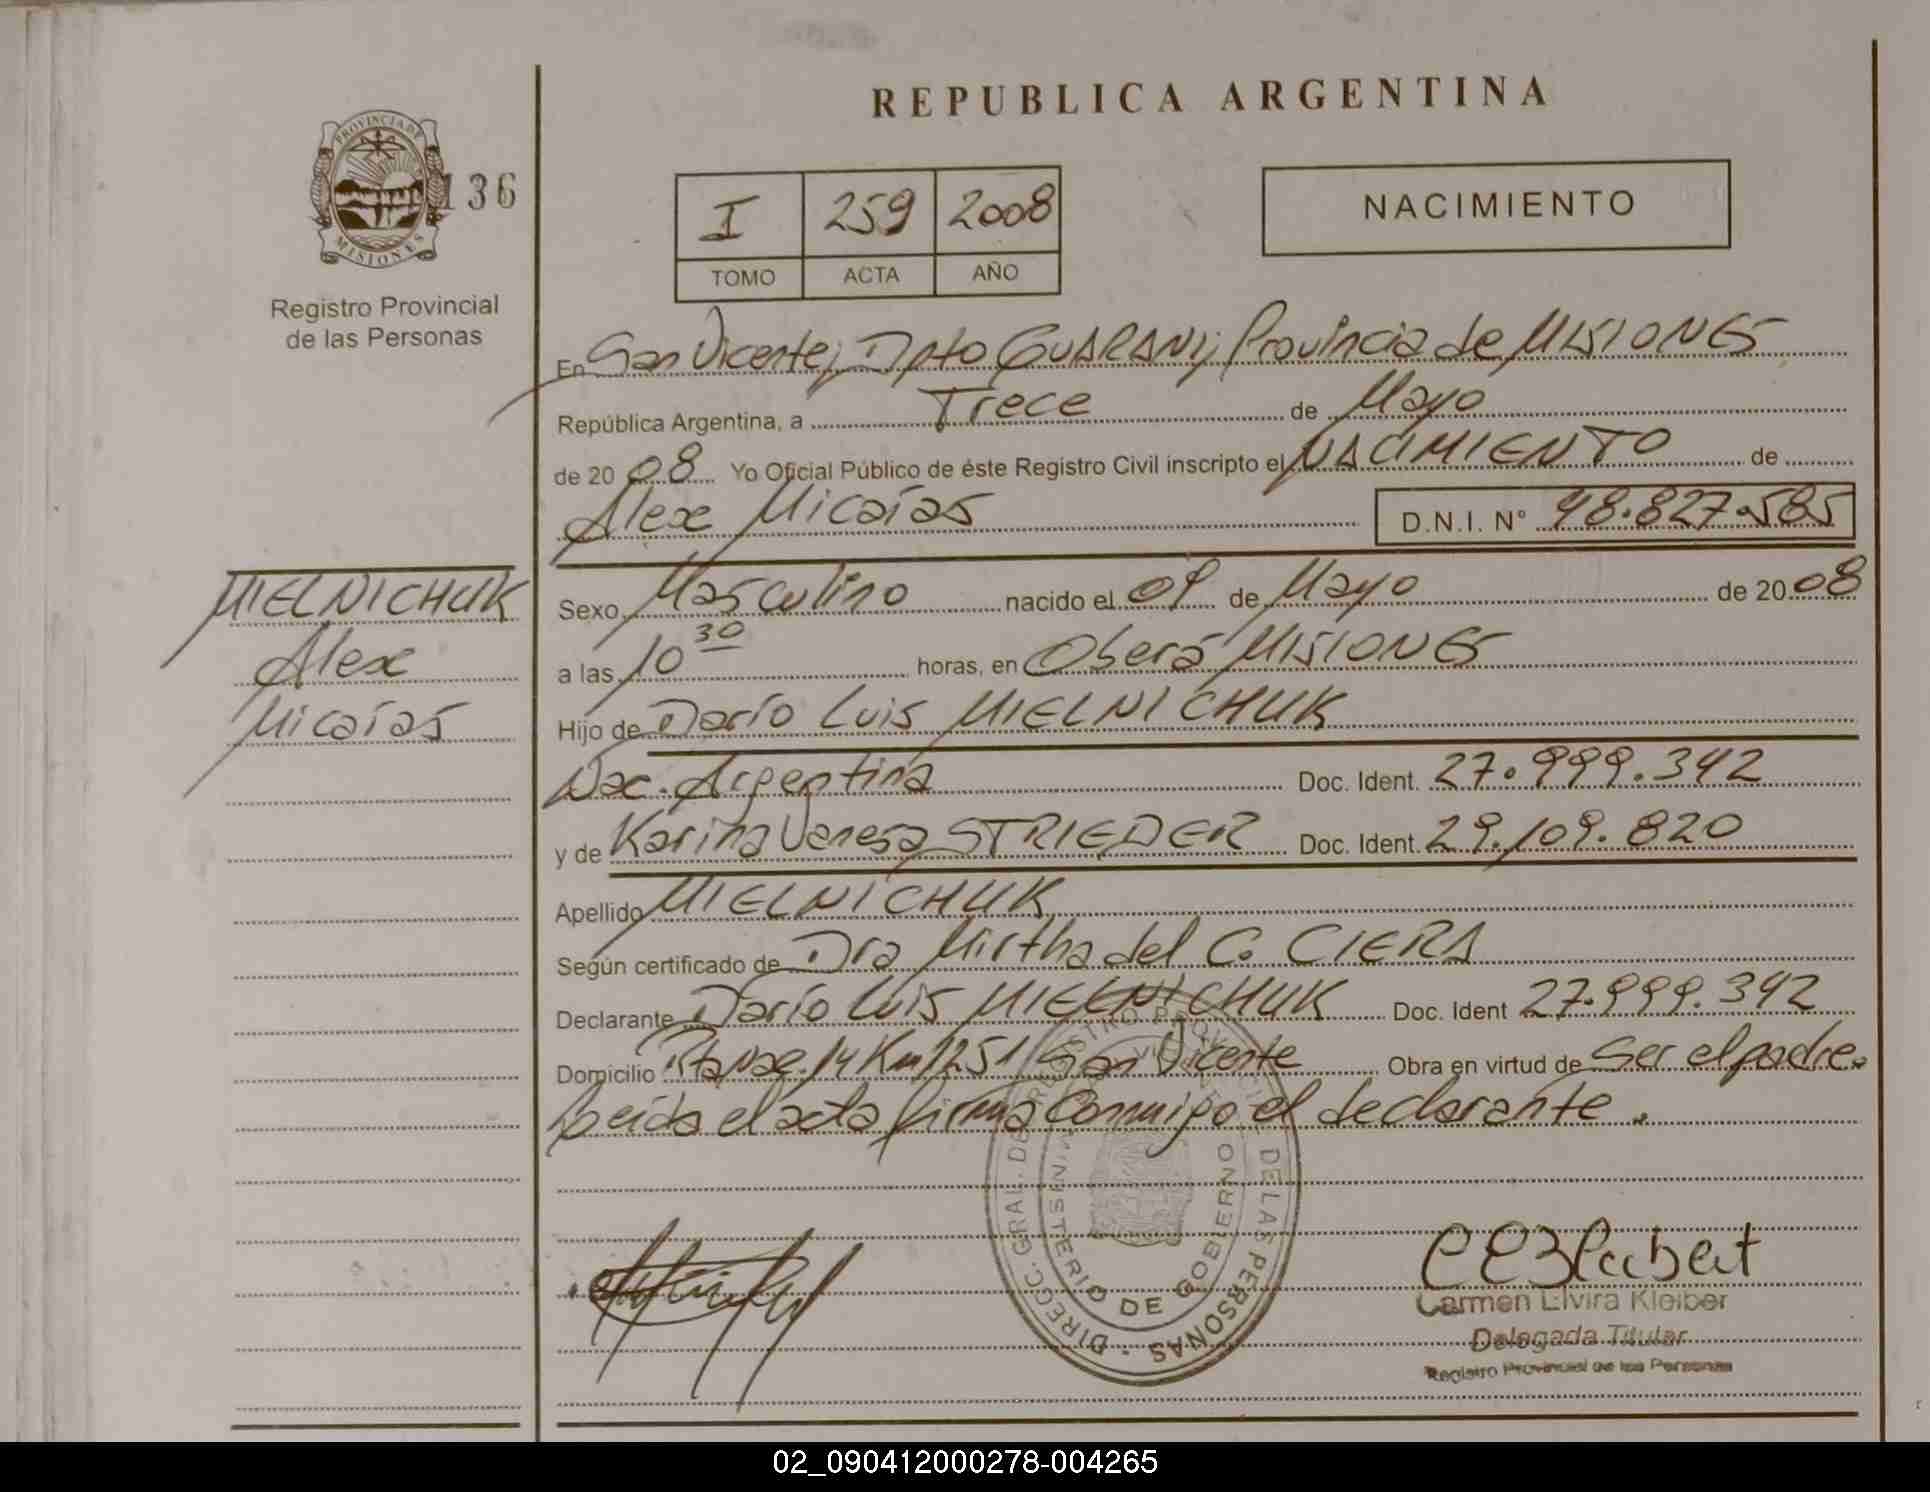 REPUBLICA ARGENTINA
PROVINCIA DE
MISIONES
136
Registro Provincial
de las Personas
I 259 2008
TOMO ACTA AÑO
NACIMIENTO
En San Vicente, Dpto GUARANI, Provincia de MISIONES
República Argentina, a Trece de Mayo
de 2008 Yo Oficial Público de éste Registro Civil inscripto el NACIMIENTO de
Alex Micaías D.N.I. N° 48.827.585
MIELNICHUK
Alex
Micaías
Sexo Masculino nacido el 09 de Mayo de 2008
a las 10 30 horas, en Oberá MISIONES
Hijo de Darío Luis MIELNICHUK
Nac. Argentina Doc. Ident. 27.999.342
y de Karina Vanesa STRIEDER Doc. Ident. 29.109.820
Apellido MIELNICHUK
Según certificado de Dra Mirtha del C. CIERA
Declarante Darío Luis MIELNICHUK Doc. Ident 27.999.342
Domicilio Rta Nac. 14 Km 1251 San Vicente Obra en virtud de Ser el padre.
Leída el acta firma Conmigo el declarante.
DIRECC. GRAL. DE REGISTRO PROVINCIAL DE LAS PERSONAS
MINISTERIO DE GOBIERNO
Carmen Elvira Kleiber
Delegada Titular
Registro Provincial de las Personas
02_090412000278-004265